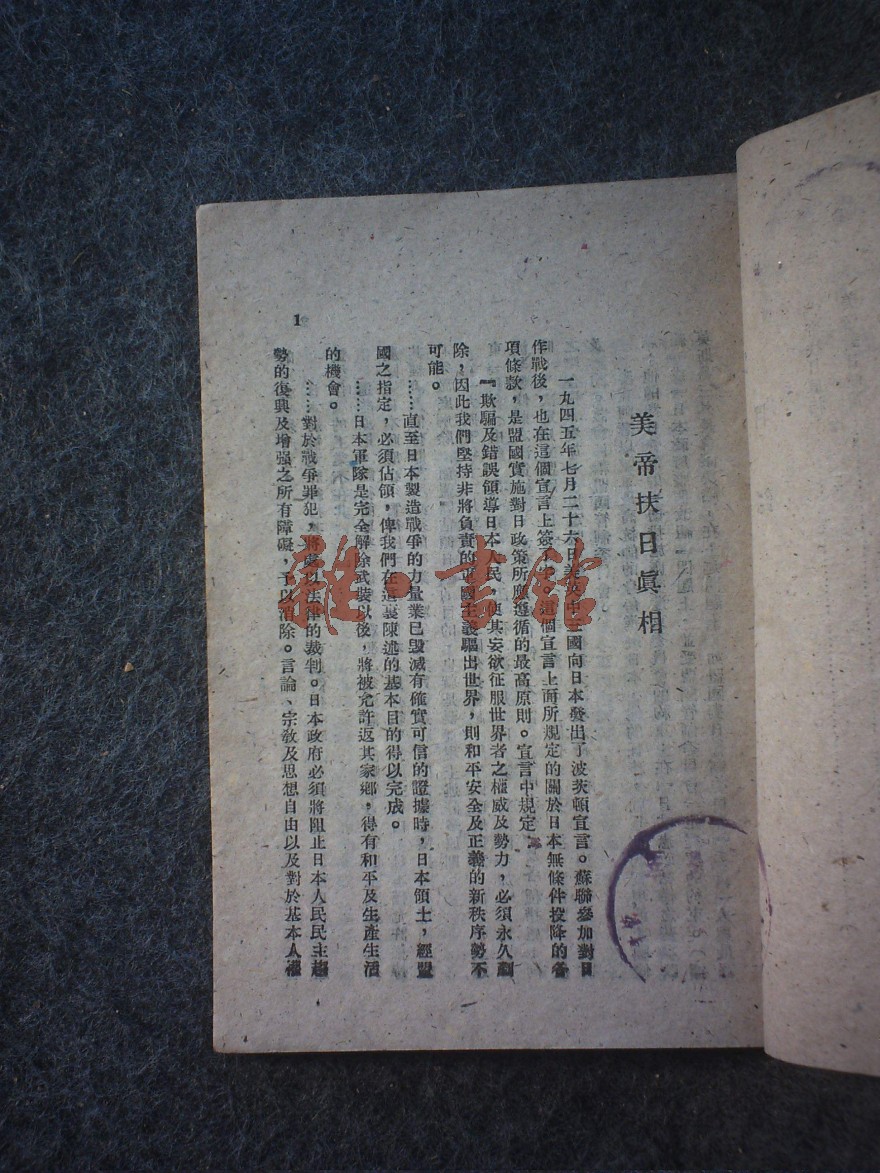 美帝扶日眞相
一九四五年七月二十六日美英中三國向日本發出了波茨頓宣言。蘇聯參加對日
作戰後，也在這個宣言上簽了。這個宣言上面所規定的關於日本無條件投降的各
項條款，是盟國實施對日政策所應遵循的最高原則。宣言中規定
「欺騙及錯誤領導日本人民，使其妄欲征服世界者之權威及勢力，必須永久剷
除，因此我們堅持非將負責的軍國主義驅出世界，則和平安全及正義的新秩序勢不
可能。
……直至日本製造戰爭的力量業已毀滅有確實可信的證據時，日本領土，經盟
國之指定，必須佔領，俾我們在這裏陳述的基本目的得以完成。
……日本軍隊是完全解除武裝以後，將被允許返其家鄉，得有和平及生產生活
的機會。
……對於戰爭罪犯，將處以法律的裁判。日本政府必須將阻止日本人民民主趨
勢的復興及增强之所有障礙，予以消除。言論、宗敎及思想自由以及對於基本人權
1
書館